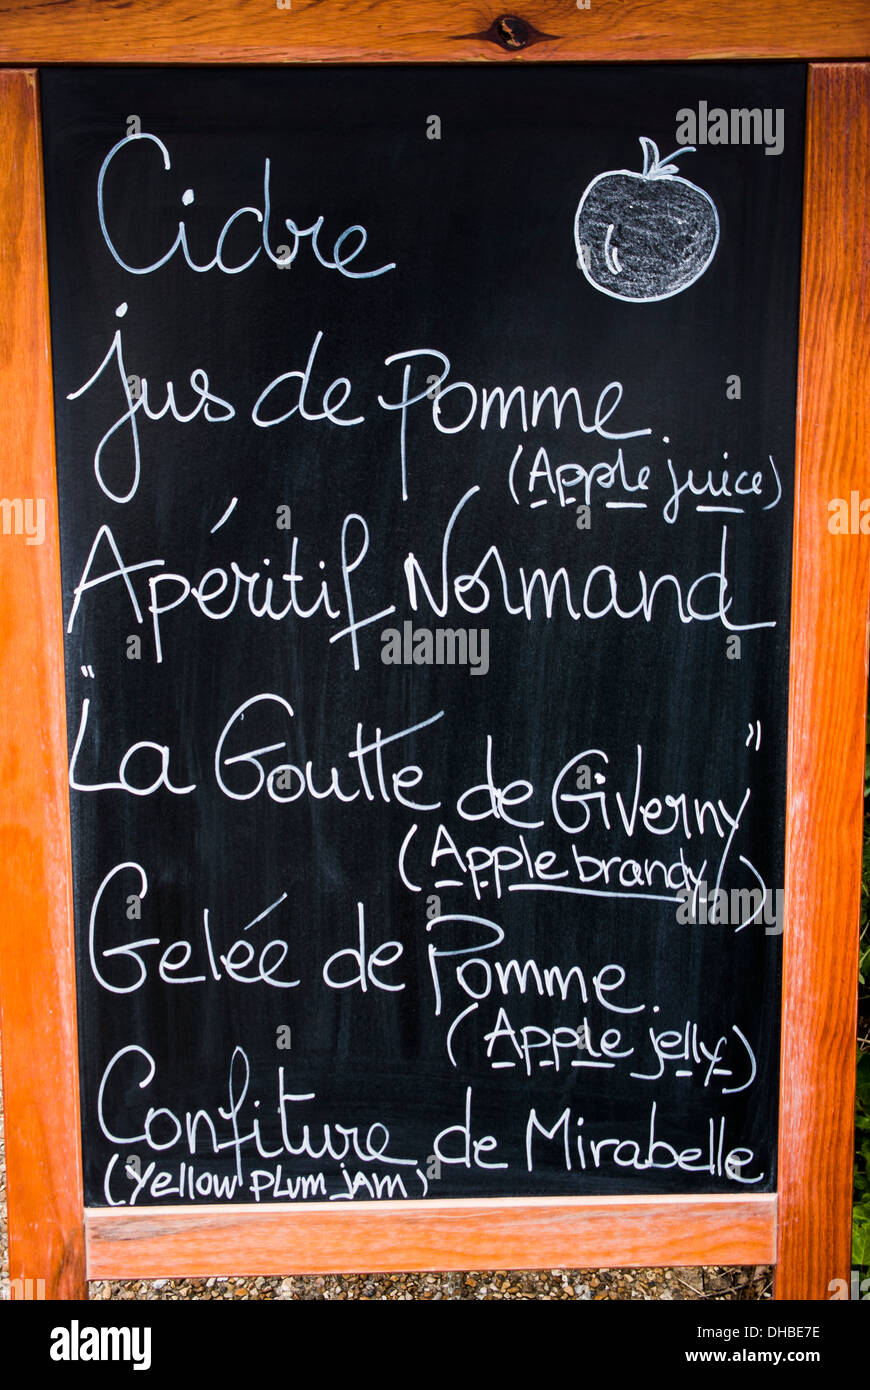 Cidre
Jus de Pomme
(Apple juice)
Apéritif Normand
"La Goutte de Giverny"
(Apple brandy)
Gelée de Pomme
(Apple jelly)
Confiture de Mirabelle
(Yellow plum jam)
alamy
Image ID: DHBE7E
www.alamy.com